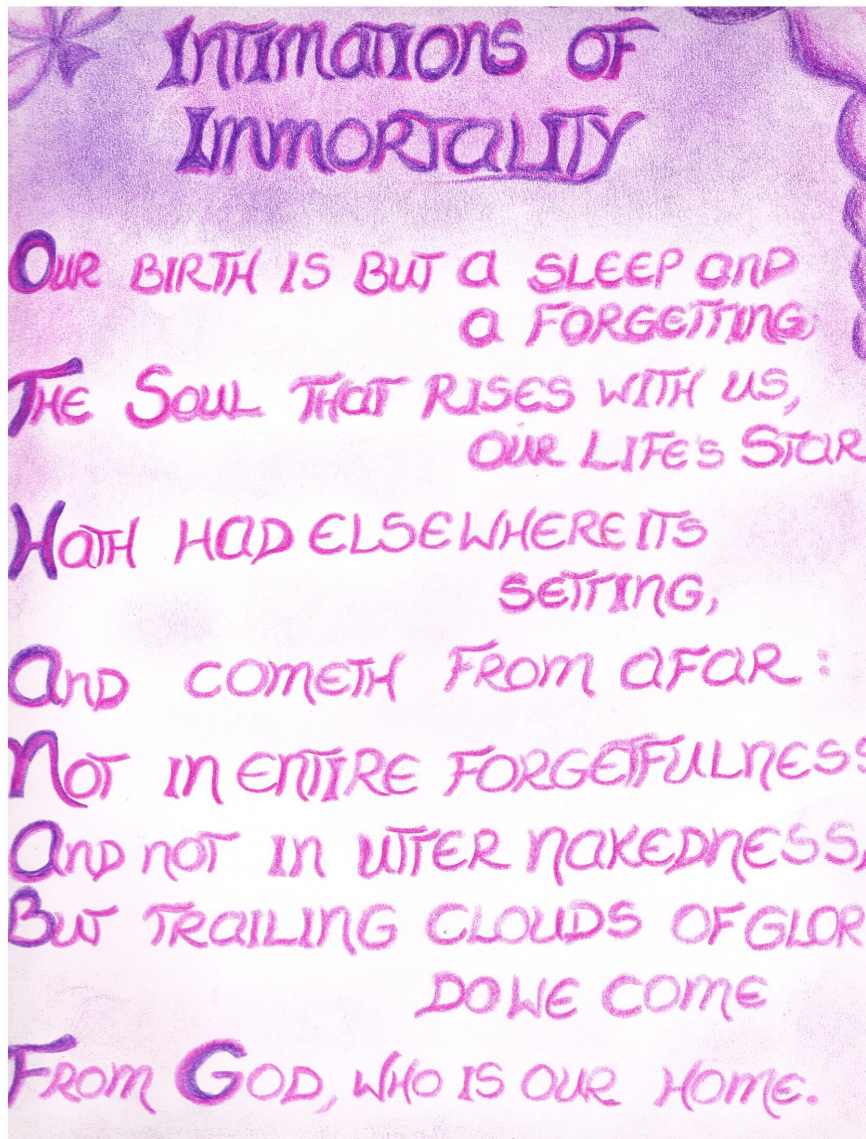 Intimations of
Immortality
Our birth is but a sleep and
a forgetting;
The Soul that rises with us,
our life's Star
Hath had elsewhere its
setting,
And cometh from afar:
Not in entire forgetfulness
And not in utter nakedness,
But trailing clouds of glor
do we come
From God, who is our home.